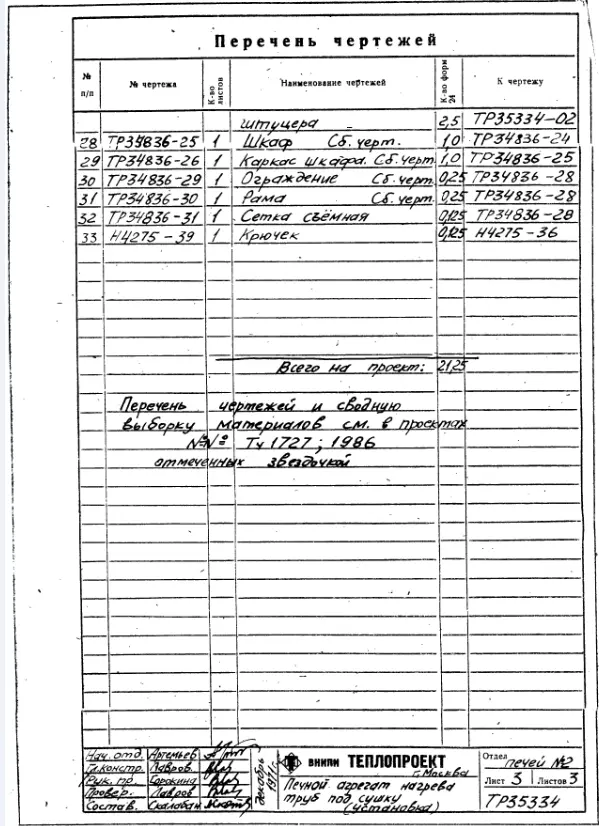 Перечень чертежей
№ п/п | № чертежа | К-во листов | Наименование чертежей | К-во форм 24 | К чертежу
штуцера | 2,5 | ТР35334-02
28 | ТР34836-25 | 1 | Шкаф Сб. черт. | 1,0 | ТР34836-24
29 | ТР34836-26 | 1 | Каркас шкафа. Сб. черт | 1,0 | ТР34836-25
30 | ТР34836-29 | 1 | Ограждение Сб. черт. | 0,25 | ТР34836-28
31 | ТР34836-30 | 1 | Рама Сб. черт. | 0,25 | ТР34836-28
32 | ТР34836-31 | 1 | Сетка съёмная | 0,125 | ТР34836-28
33 | Н4275-39 | 1 | Крючек | 0,125 | Н4275-36
Всего на проект: 21,25
Перечень чертежей и сводную
выборку материалов см. в проектах
№№ Тч 1727; 1986
отмеченных звездочкой
Нач. отд. Артемьев
Гл.констр. Лавров
Рук. пр. Сорокина
Провер. Лавров
Состав. Скалабан
декабрь 1971г.
ВНИПИ ТЕПЛОПРОЕКТ
г. Москва
Печной агрегат нагрева
труб под сушку
(установка)
Отдел печей №2
Лист 3 Листов 3
ТР35334